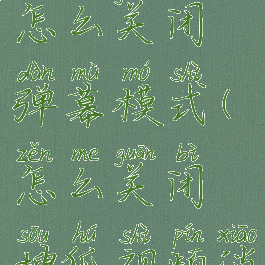 怎么关闭
dàn mù mó shì
弹幕模式(
zěn me guān bì
怎么关闭
sōu hú shì pín xiāo
搜狐视频消